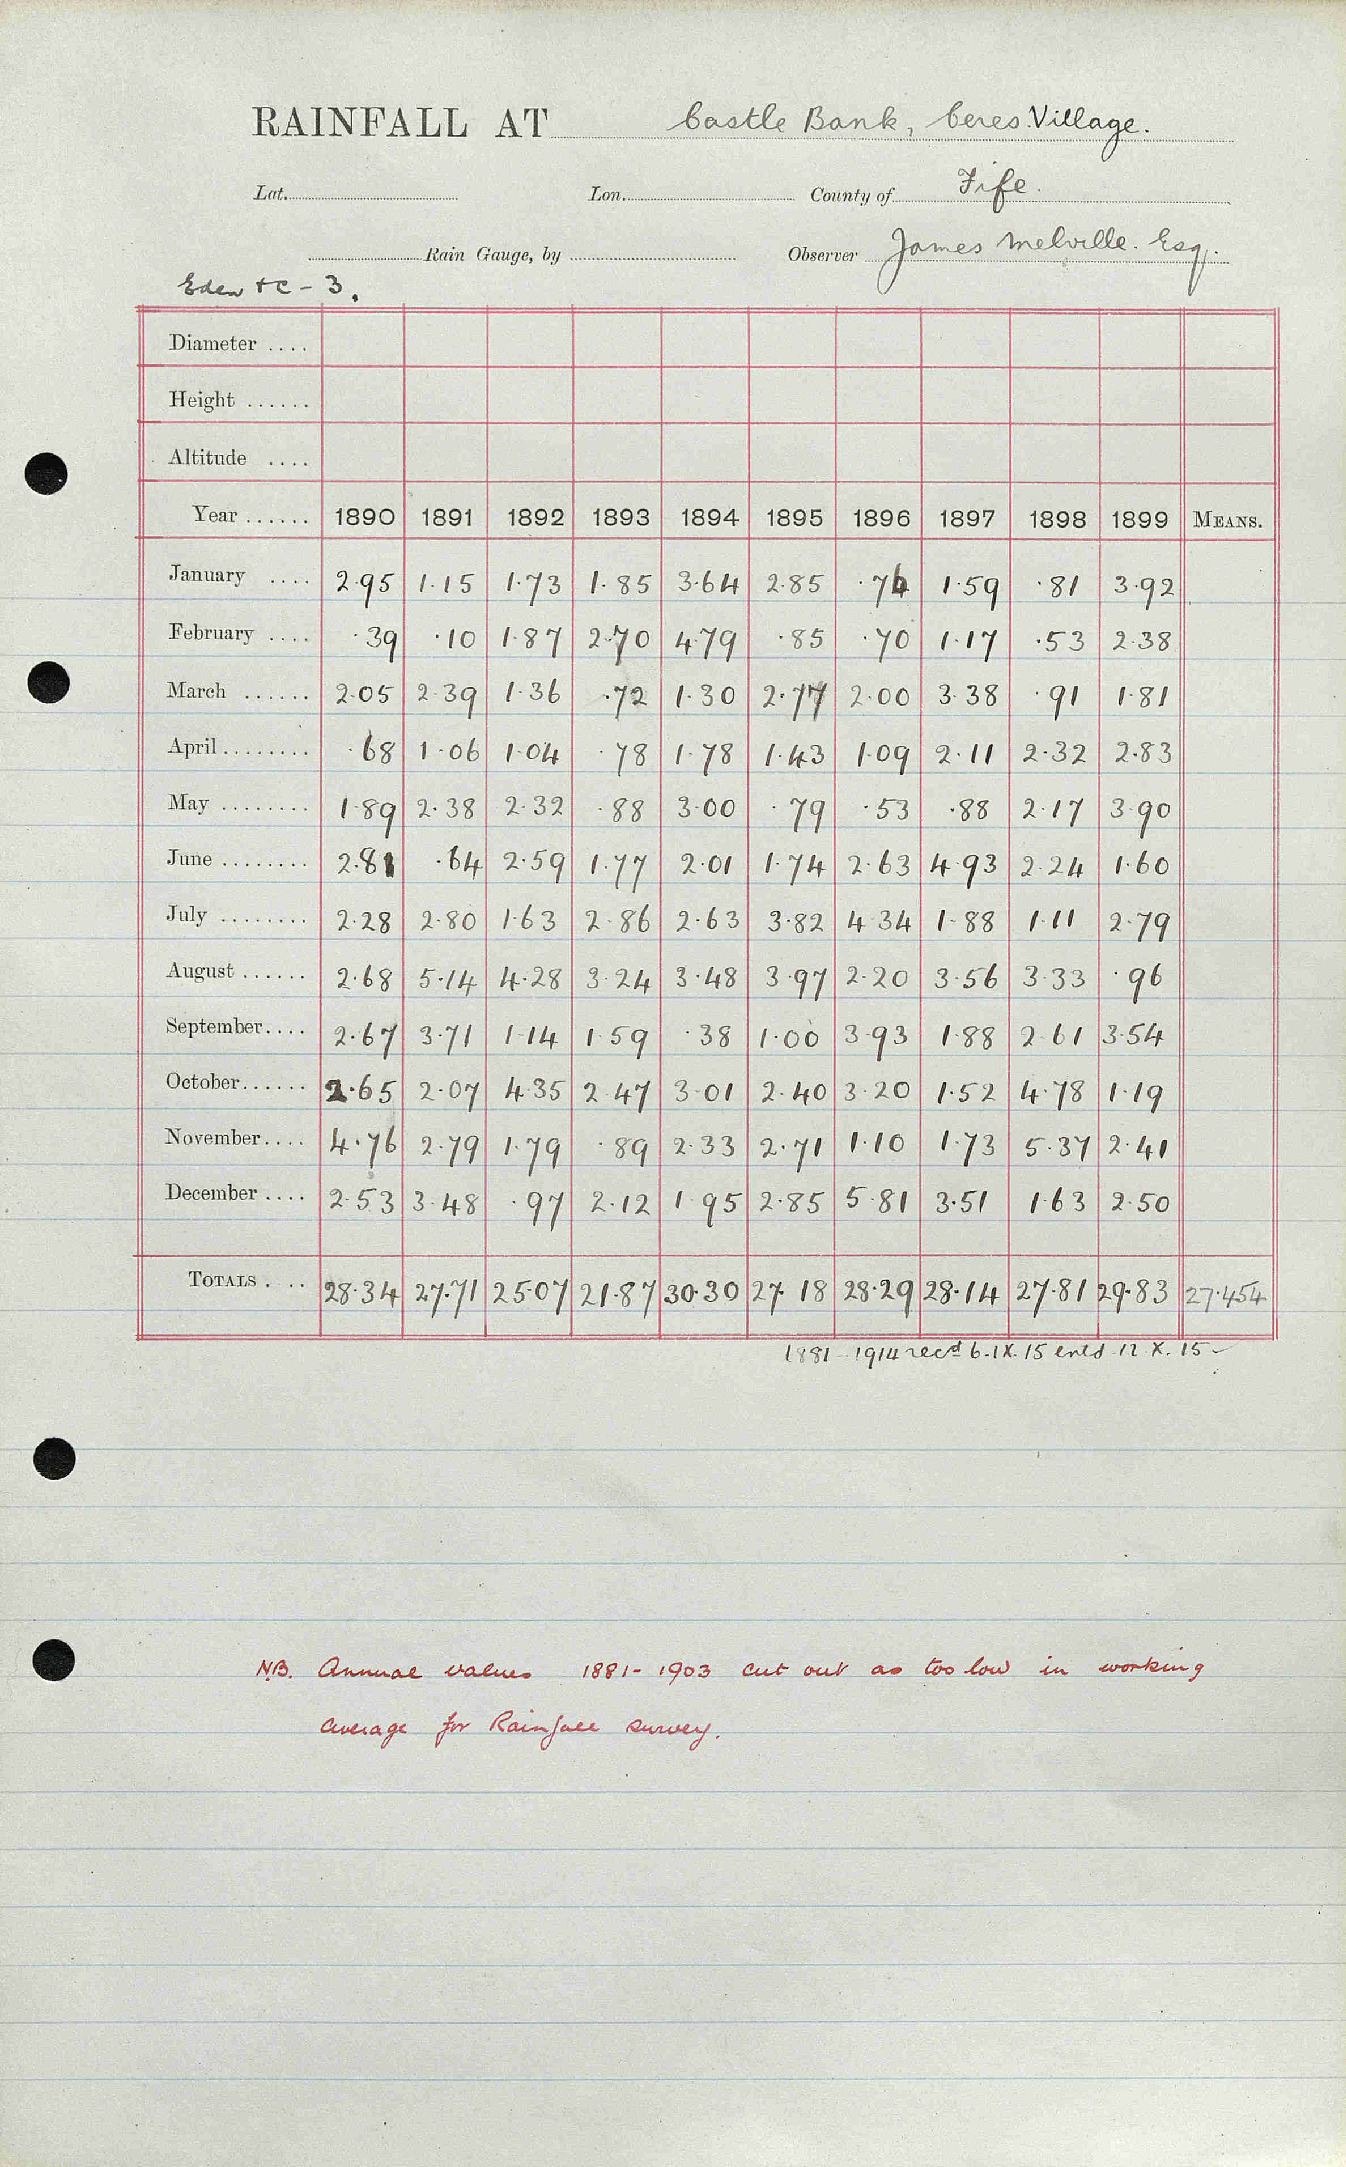 RAINFALL AT Castle Bank, Ceres Village.
Lat. Lon. County of Fife.
Rain Gauge, by Observer James Melville. Esq.
Eden &c - 3.
Diameter ....
Height ......
Altitude ....
Year ...... 1890 1891 1892 1893 1894 1895 1896 1897 1898 1899 MEANS.
January .... 2.95 1.15 1.73 1.85 3.64 2.85 .76 1.59 .81 3.92
February .... .39 .10 1.87 2.70 4.79 .85 .70 1.17 .53 2.38
March ...... 2.05 2.39 1.36 .72 1.30 2.77 2.00 3.38 .91 1.81
April ........ .68 1.06 1.04 .78 1.78 1.43 1.09 2.11 2.32 2.83
May ........ 1.89 2.38 2.32 .88 3.00 .79 .53 .88 2.17 3.90
June ........ 2.81 .64 2.59 1.77 2.01 1.74 2.63 4.93 2.24 1.60
July ........ 2.28 2.80 1.63 2.86 2.63 3.82 4.34 1.88 1.11 2.79
August ...... 2.68 5.14 4.28 3.24 3.48 3.97 2.20 3.56 3.33 .96
September.... 2.67 3.71 1.14 1.59 .38 1.00 3.93 1.88 2.61 3.54
October...... 2.65 2.07 4.35 2.47 3.01 2.40 3.20 1.52 4.78 1.19
November.... 4.76 2.79 1.79 .89 2.33 2.71 1.10 1.73 5.37 2.41
December .... 2.53 3.48 .97 2.12 1.95 2.85 5.81 3.51 1.63 2.50
TOTALS . .. 28.34 27.71 25.07 21.87 30.30 27.18 28.29 28.14 27.81 29.83 27.454
1881-1914 recd 6.IX.15 entd 12.X.15
NB. Annual values 1881-1903 cut out as too low in working
average for Rainfall survey.